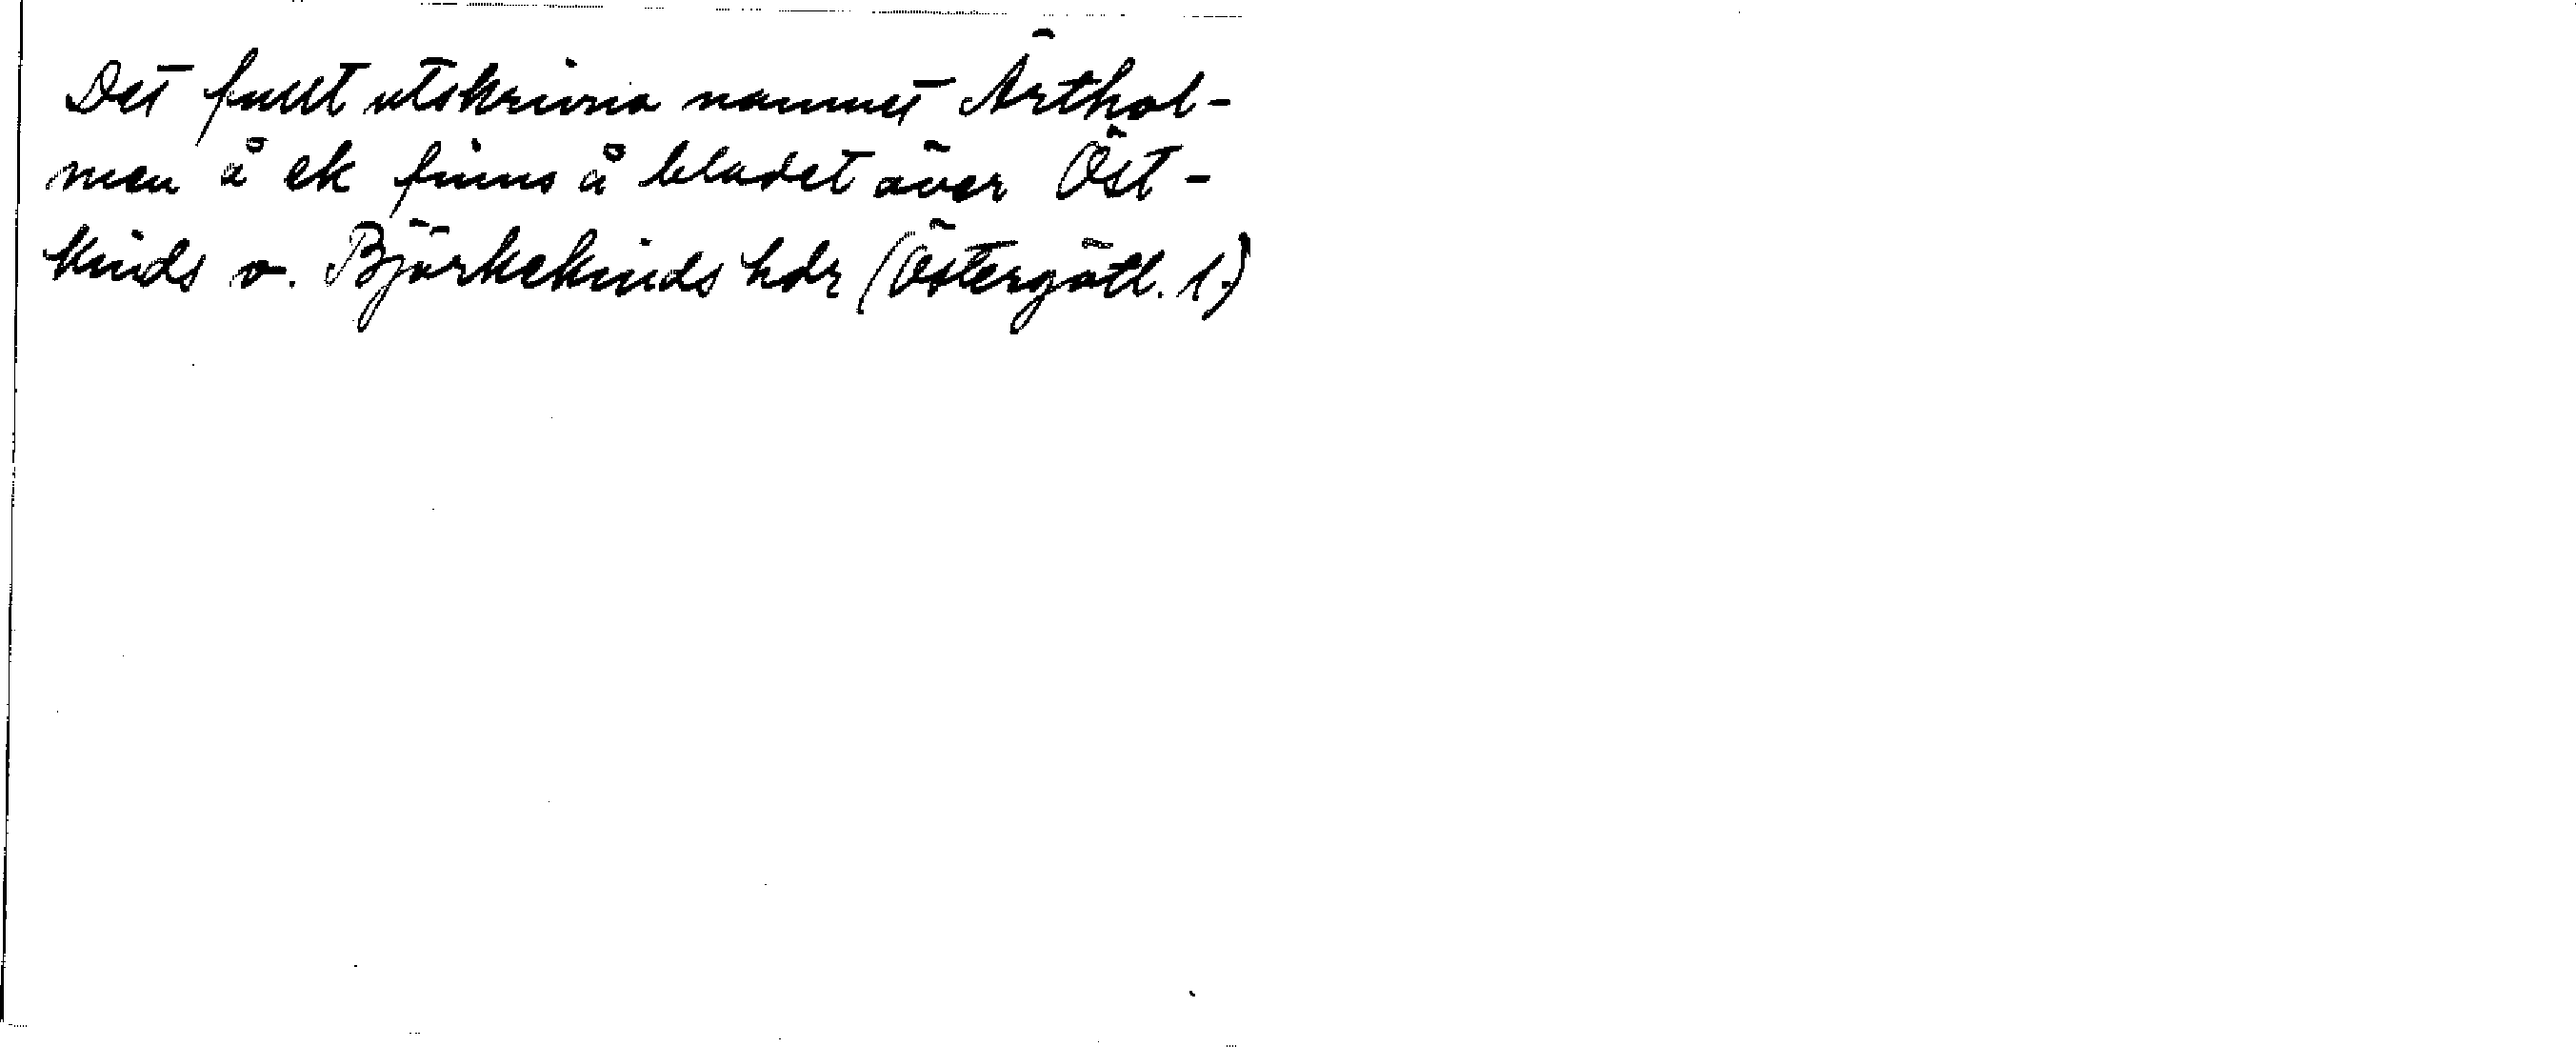 Det fullt utskrivna namnet Ärthol-
men å ek finns å bladet över Öst-
kinds o. Björkekinds hdr (Östergötl. l.)